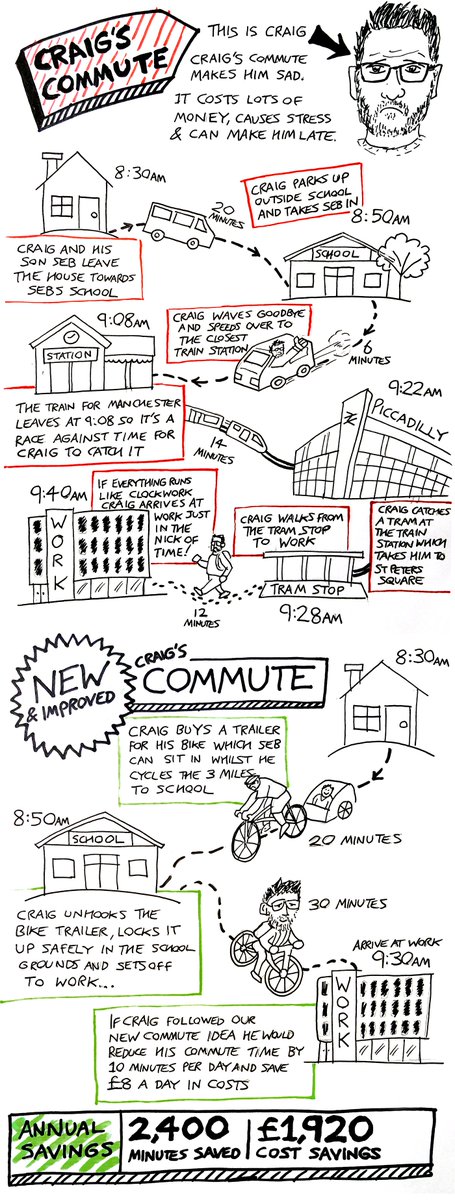 CRAIG'S
COMMUTE
THIS IS CRAIG
CRAIG'S COMMUTE
MAKES HIM SAD.
IT COSTS LOTS OF
MONEY, CAUSES STRESS
& CAN MAKE HIM LATE.
8:30AM
20
MINUTES
CRAIG PARKS UP
OUTSIDE SCHOOL
AND TAKES SEB IN
8:50AM
SCHOOL
CRAIG AND HIS
SON SEB LEAVE
THE HOUSE TOWARDS
SEBS SCHOOL
CRAIG WAVES GOODBYE
AND SPEEDS OVER TO
THE CLOSEST
TRAIN STATION
6
MINUTES
9:08AM
STATION
THE TRAIN FOR MANCHESTER
LEAVES AT 9:08 SO IT'S A
RACE AGAINST TIME FOR
CRAIG TO CATCH IT
14
MINUTES
9:22AM
PICCADILLY
CRAIG CATCHES
A TRAM AT
THE TRAIN
STATION WHICH
TAKES HIM TO
ST PETERS
SQUARE
CRAIG WALKS FROM
THE TRAM STOP
TO WORK
TRAM STOP
9:28AM
12
MINUTES
IF EVERYTHING RUNS
LIKE CLOCKWORK
CRAIG ARRIVES AT
WORK JUST
IN THE
NICK OF
TIME!
9:40AM
WORK
NEW
& IMPROVED
CRAIG'S
COMMUTE
8:30AM
CRAIG BUYS A TRAILER
FOR HIS BIKE WHICH SEB
CAN SIT IN WHILST HE
CYCLES THE 3 MILES
TO SCHOOL
20 MINUTES
8:50AM
SCHOOL
CRAIG UNHOOKS THE
BIKE TRAILER, LOCKS IT
UP SAFELY IN THE SCHOOL
GROUNDS AND SETS OFF
TO WORK...
30 MINUTES
ARRIVE AT WORK
9:30AM
WORK
IF CRAIG FOLLOWED OUR
NEW COMMUTE IDEA HE WOULD
REDUCE HIS COMMUTE TIME BY
10 MINUTES PER DAY AND SAVE
£8 A DAY IN COSTS
ANNUAL
SAVINGS
2,400
MINUTES SAVED
£1,920
COST SAVINGS